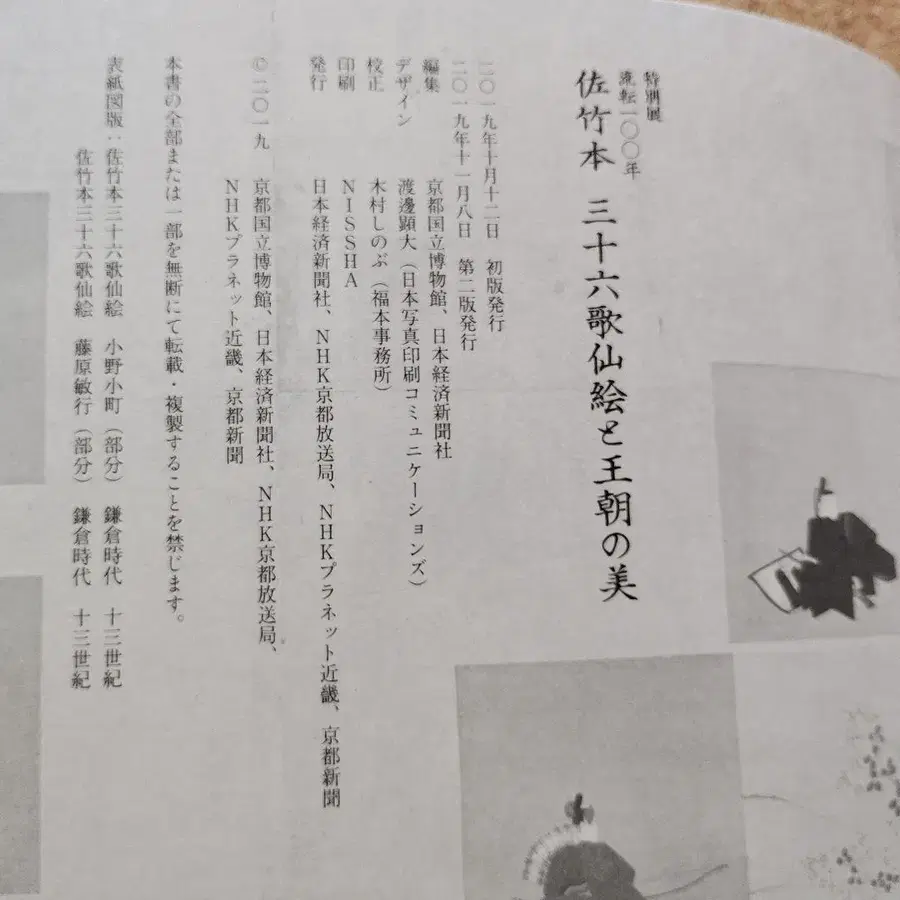 特別展
流転一〇〇年
佐竹本 三十六歌仙絵と王朝の美
二〇一九年十月十二日 初版発行
二〇一九年十一月八日 第二版発行
編集 京都国立博物館、日本経済新聞社
デザイン 渡邊顕大（日本写真印刷コミュニケーションズ）
校正 木村しのぶ（福本事務所）
印刷 NISSHA
発行 日本経済新聞社、NHK京都放送局、NHKプラネット近畿、京都新聞
©二〇一九 京都国立博物館、日本経済新聞社、NHK京都放送局、
NHKプラネット近畿、京都新聞
本書の全部または一部を無断にて転載・複製することを禁じます。
表紙図版：佐竹本三十六歌仙絵 小野小町（部分） 鎌倉時代 十三世紀
佐竹本三十六歌仙絵 藤原敏行（部分） 鎌倉時代 十三世紀